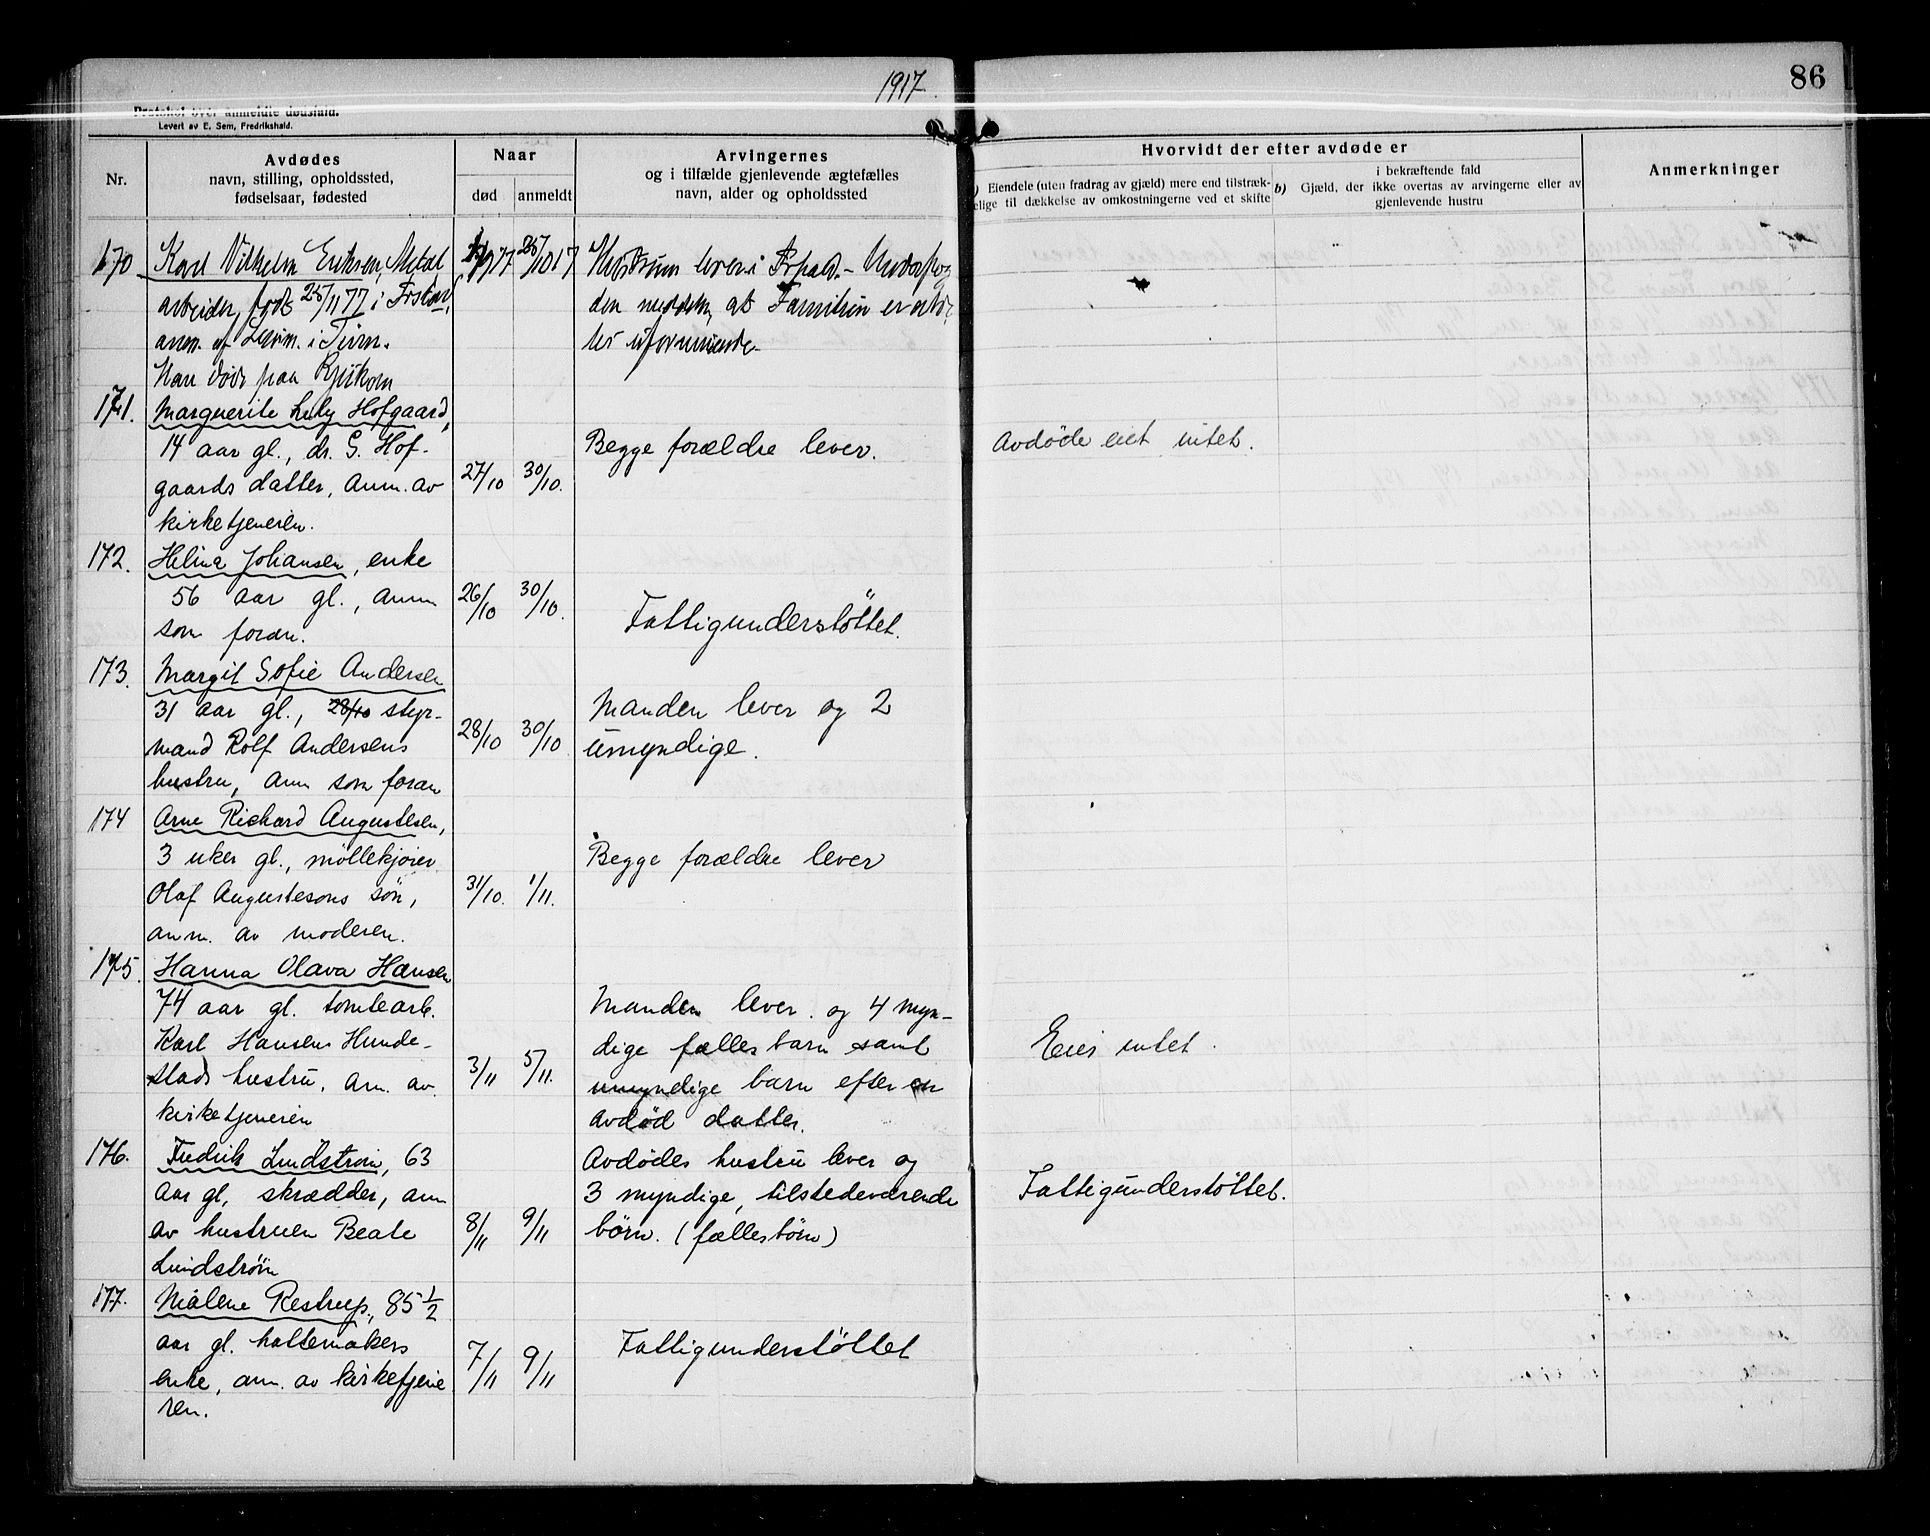 1917.
86
Protokol over anmeldte dødsfald.
Levert av E. Sem, Fredrikshald.
Nr.
Avdødes
navn, stilling, opholdssted,
fødselsaar, fødested
Naar
død
anmeldt
Arvingernes
og i tilfælde gjenlevende ægtefælles
navn, alder og opholdssted
Hvorvidt der efter avdøde er
Eiendele (uten fradrag av gjæld) mere end tilstræk-
elige til dækkelse av omkostningerne ved et skifte
i bekræftende fald
b) Gjæld, der ikke overtas av arvingerne eller av
gjenlevende hustru
Anmerkninger
170 Karl Vilhelm Eriksen, Metal
arbeider, født 25/11 77 i
anm. af i
Han døde paa
25/10 17
lever i
den at Familien er
171. Marguerite Luly Hofgaard,
14 aar gl., dr. G. Hof-
gaards datter, Anm. av
kirketjeneren.
27/10 30/10.
Begge forældre lever.
Avdøde eiet intet.
172. Helina Johansen, enke
56 aar gl., anm
som foran.
26/10 30/10.
Fattigunderstöttet.
173. Margit Sofie Andersen
31 aar gl., 28/10 styr-
mand Rolf Andersens
hustru, anm som foran
28/10 30/10.
Manden lever og 2
umyndige.
174 Arne Richard Augustesen,
3 uker gl., möllekjörer
Olaf Augustesons sön,
anm. av moderen.
31/10. 1/11.
Begge forældre lever
175. Hanna Olava Hansen
74 aar gl. tomtearb.
Karl Hansens Hunde-
stads hustru, am. av
kirketjeneren
3/11 5/11.
Manden lever. og 4 myn-
dige fælles barn samt
umyndige barn efter en
avdød datter.
Eier intet.
176. Fredrik Lindström, 63
aar gl, skrædder, anm
av hustruen Beate
Lindström
8/11 9/11
Avdødes hustru lever og
3 myndige, tilstedeværende
börn. (fællesbörn)
Fattigunderstöttet.
177. Malene Restrup, 85 1/2
aar gl. hattemakers
enke, anm. av kirketjene
ren.
7/11 9/11
Fattigunderstöttet